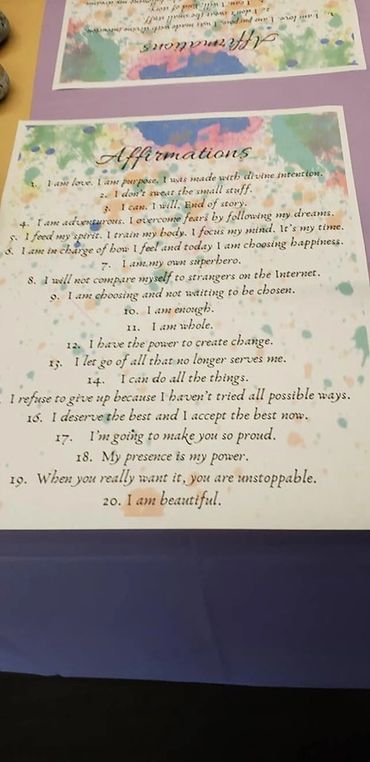 1. I am love, I am purpose, I was made with divine
Affirmations
Affirmations
1. I am love. I am purpose. I was made with divine intention.
2. I don't sweat the small stuff.
3. I can. I will. End of story.
4. I am adventurous. I overcome fears by following my dreams.
5. I feed my spirit. I train my body. I focus my mind. It's my time.
6. I am in charge of how I feel and today I am choosing happiness.
7. I am my own superhero.
8. I will not compare myself to strangers on the Internet.
9. I am choosing and not waiting to be chosen.
10. I am enough.
11. I am whole.
12. I have the power to create change.
13. I let go of all that no longer serves me.
14. I can do all the things.
I refuse to give up because I haven't tried all possible ways.
16. I deserve the best and I accept the best now.
17. I'm going to make you so proud.
18. My presence is my power.
19. When you really want it, you are unstoppable.
20. I am beautiful.